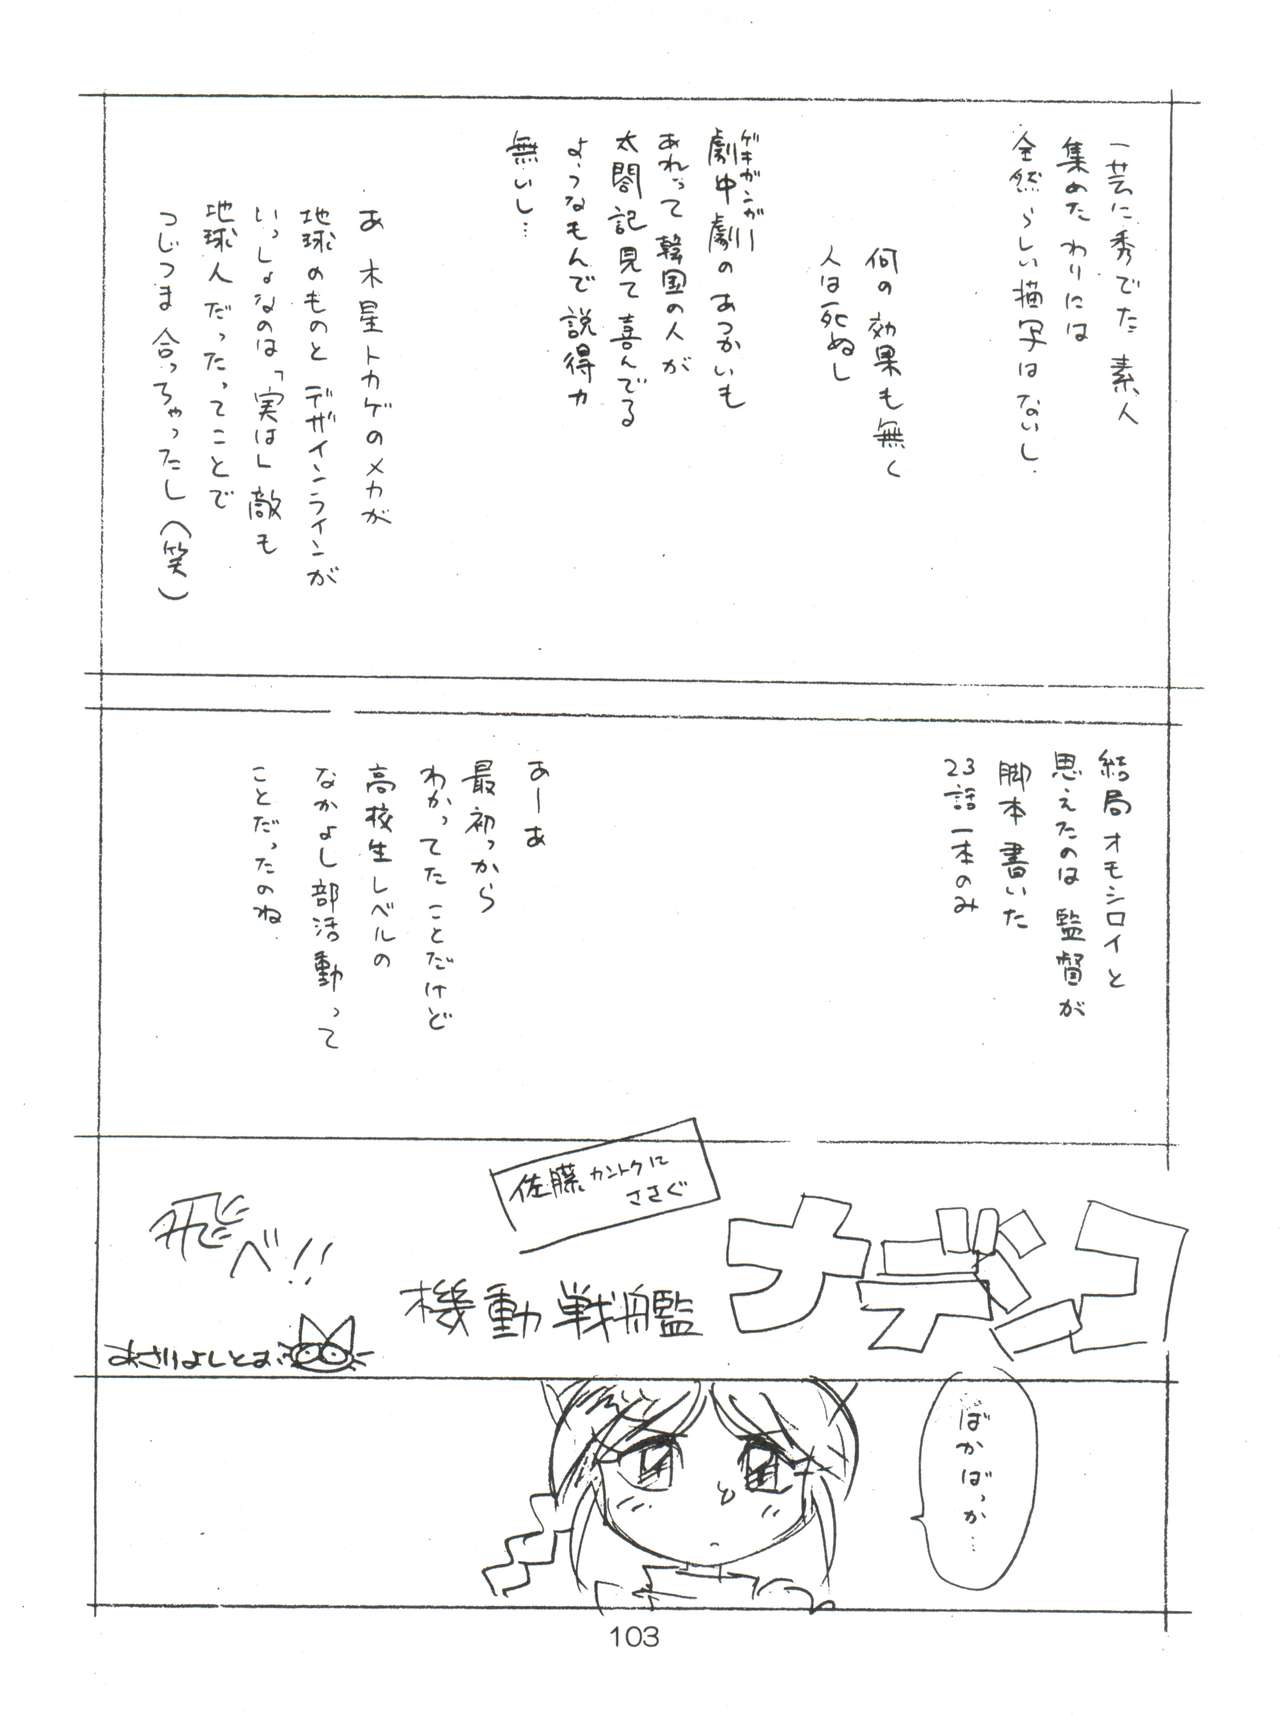 一芸に秀でた素人
集めたわりには
全然らしい描写はないし.
何の効果も無く
人は死ぬし
ゲキガンガー
劇中劇のあつかいも
あれって韓国の人が
太閤記見て喜んでる
よーなもんで説得力
無いし…
あ 木星トカゲのメカが
地球のものとデザインラインが
いっしょなのは「実は」敵も
地球人だったってことで
つじつま合っちゃったし(笑)
結局オモシロイと
思えたのは監督が
脚本書いた
23話一本のみ
あーあ
最初っから
わかってたことだけど
高校生レベルの
なかよし部活動って
ことだったのね.
佐藤カントクに
ささぐ
機動戦艦
ナデシコ
飛べ!!
あさりよしとお
ばかばっか…
103